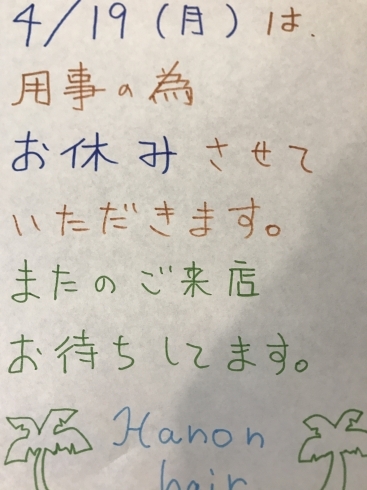 4/19（月）は、
用事の為
お休みさせて
いただきます。
またのご来店
お待ちしてます。
Hanon
hair